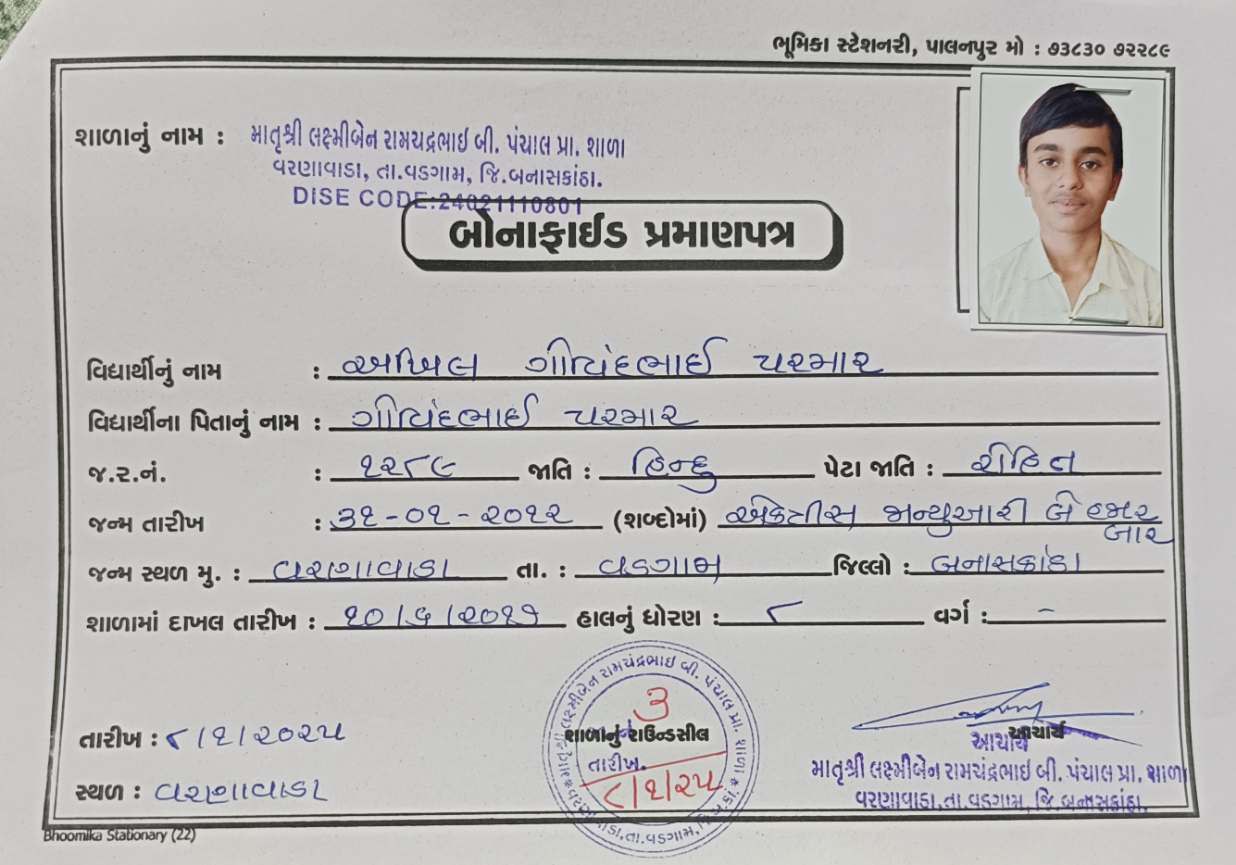 ભૂમિકા સ્ટેશનરી, પાલનપુર મો : ૭૩૮૩૦ ૭૨૨૮૯
શાળાનું નામ : માતૃશ્રી લક્ષ્મીબેન રામચંદ્રભાઇ બી. પંચાલ પ્રા. શાળા
વરણાવાડા, તા.વડગામ, જિ.બનાસકાંઠા.
DISE CODE:24021110801
બોનાફાઈડ પ્રમાણપત્ર
વિદ્યાર્થીનું નામ : અખિલ ગોવિંદભાઈ પરમાર
વિદ્યાર્થીના પિતાનું નામ : ગોવિંદભાઈ પરમાર
જ.ર.નં. : ૧૨૮૯ જાતિ : હિન્દુ પેટા જાતિ : રોહિત
જન્મ તારીખ : ૩૧-૦૧-૨૦૧૨ (શબ્દોમાં) એકત્રીસ જાન્યુઆરી બે હજાર
બાર
જન્મ સ્થળ મુ. : વરણાવાડા તા. : વડગામ જિલ્લો : બનાસકાંઠા
શાળામાં દાખલ તારીખ : ૧૦/૬/૨૦૧૭ હાલનું ધોરણ : ૮ વર્ગ : -
માતૃશ્રી લક્ષ્મીબેન રામચંદ્રભાઇ બી. પંચાલ પ્રા. શાળા
૩
તારીખ : ૮/૧/૨૦૨૫ શાળાનું રાઉન્ડસીલ આચાર્ય
આચાર્ય
તારીખ. માતૃશ્રી લક્ષ્મીબેન રામચંદ્રભાઇ બી. પંચાલ પ્રા. શાળા
સ્થળ : વરણાવાડા ૮/૧/૨૫ વરણાવાડા,તા.વડગામ, જિ.બનાસકાંઠા.
તા.વડગામ,
Bhoomika Stationary (22)